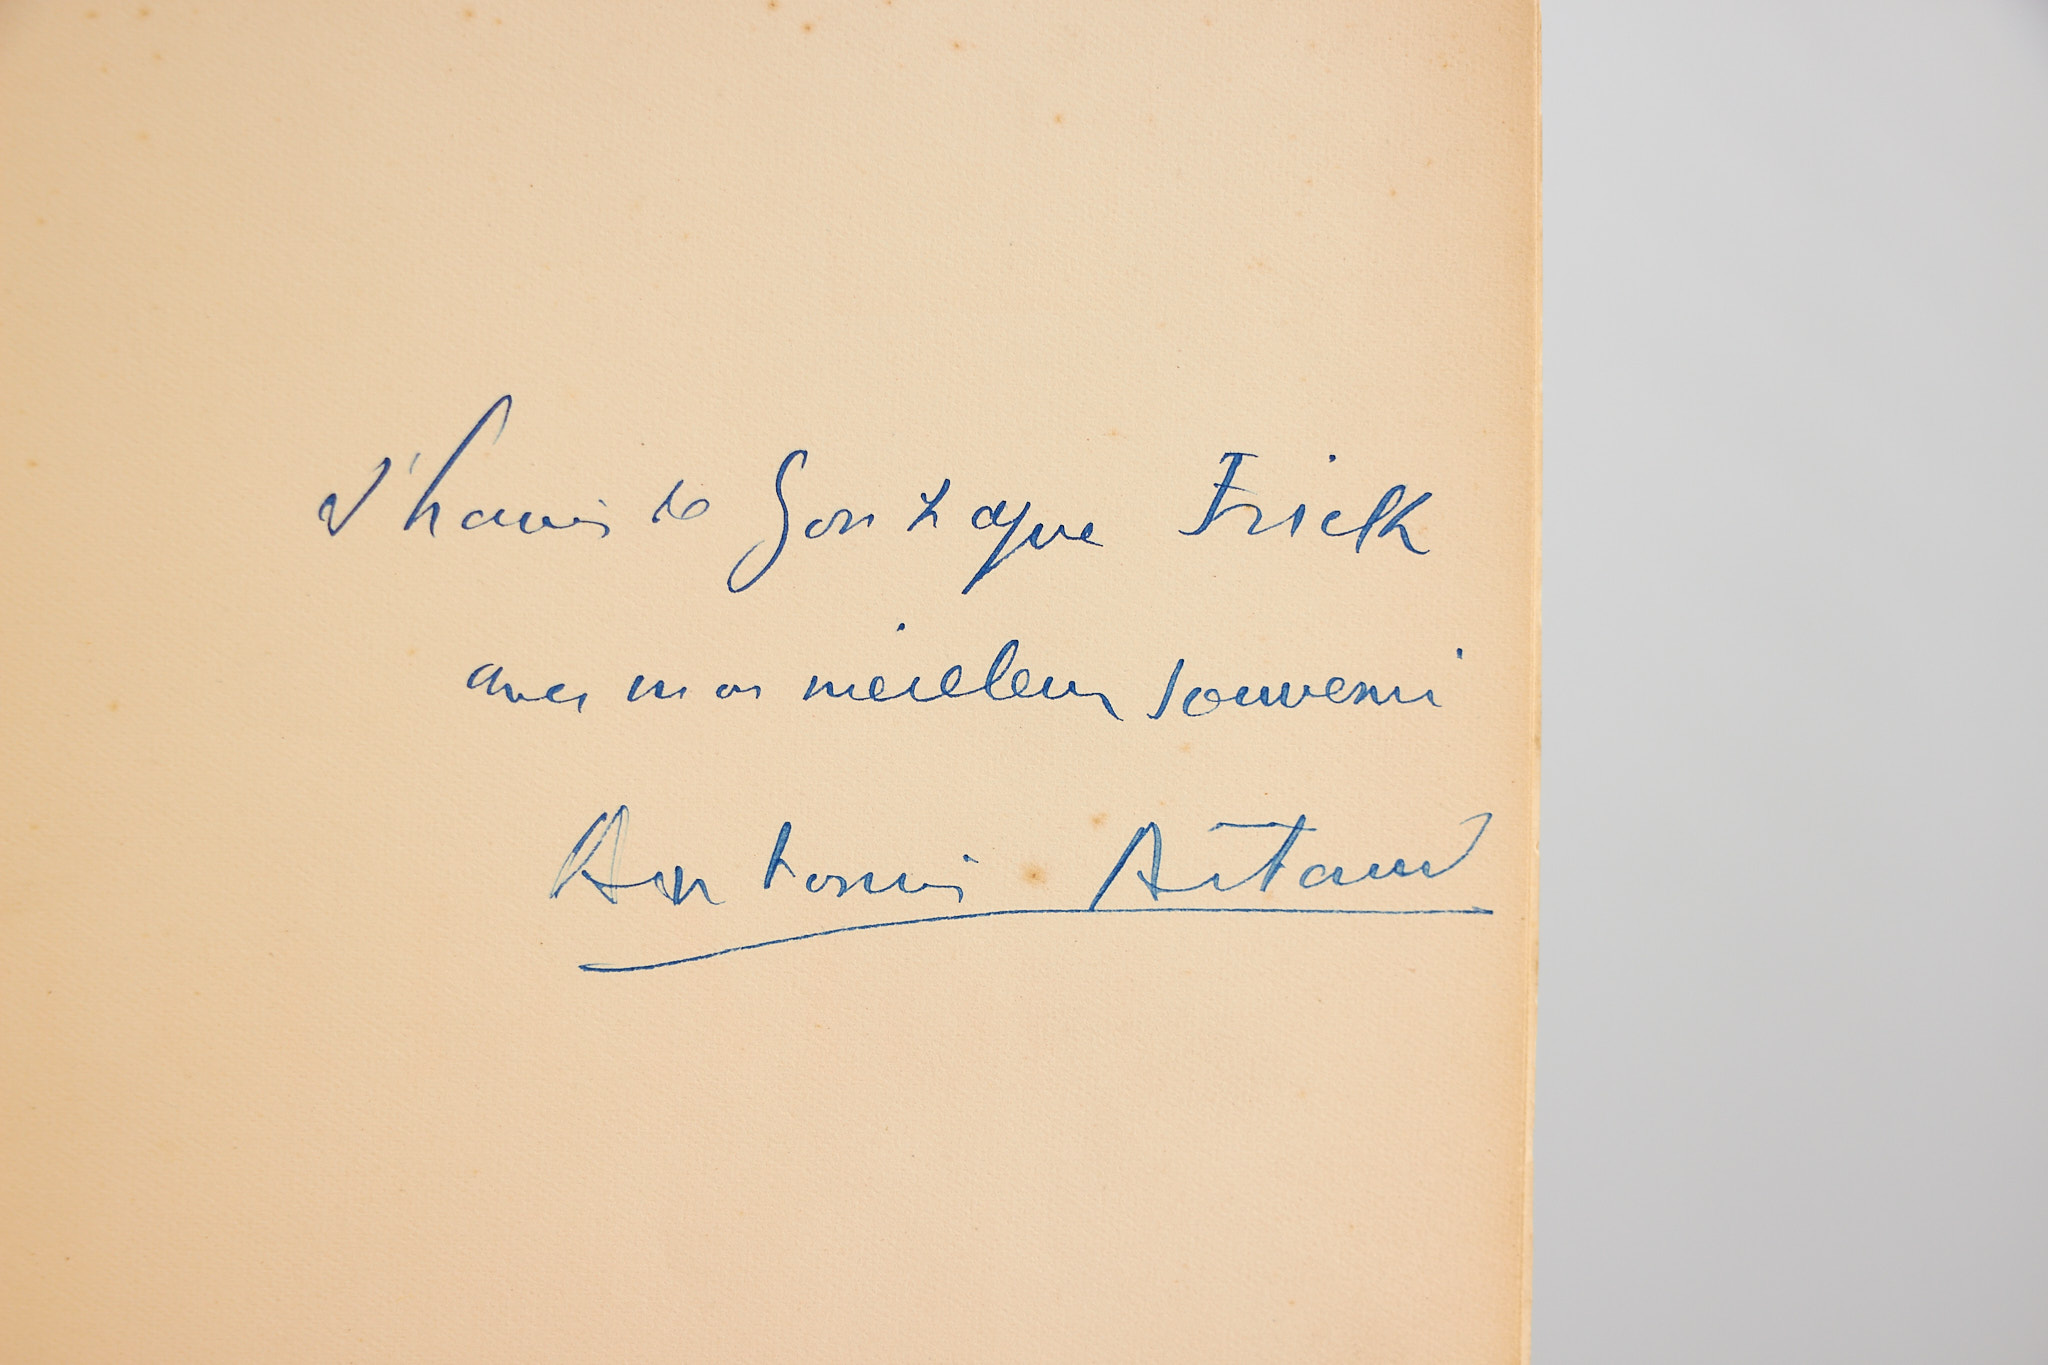 à Louis de Gonzague Frick
avec mon meilleur souvenir
Antonin Artaud